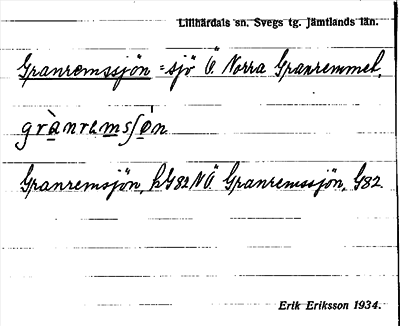 Lillhärdals sn. Svegs tg. Jämtlands län.
Granremssjön = sjö Ö. Norra Granremmet.
grànremsʃö̀n
Granremsjön, kG82 NÖ Granremssjön, G82.
Erik Eriksson 1934.